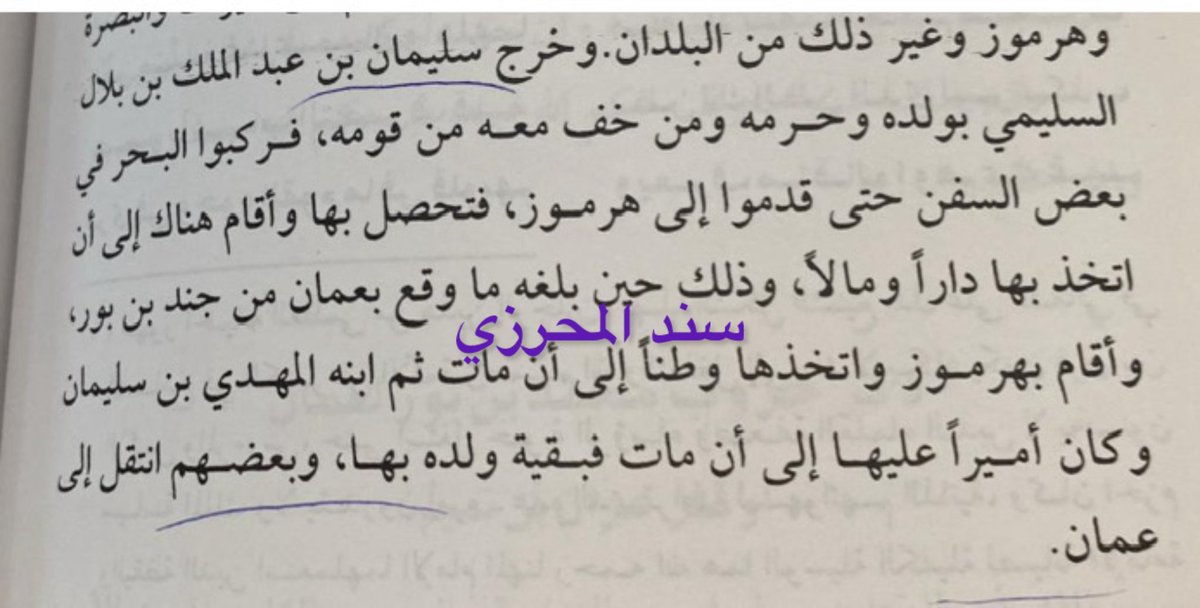 والبصرة
وهرموز وغير ذلك من البلدان. وخرج سليمان بن عبد الملك بن بلال
السليمي بولده وحرمه ومن خف معه من قومه، فركبوا البحر في
بعض السفن حتى قدموا إلى هرموز، فتحصل بها وأقام هناك إلى أن
اتخذ بها داراً ومالاً، وذلك حين بلغه ما وقع بعمان من جند بن بور،
سند المحرزي
وأقام بهرموز واتخذها وطناً إلى أن مات ثم ابنه المهدي بن سليمان
وكان أميراً عليها إلى أن مات فبقية ولده بها، وبعضهم انتقل إلى
عمان.